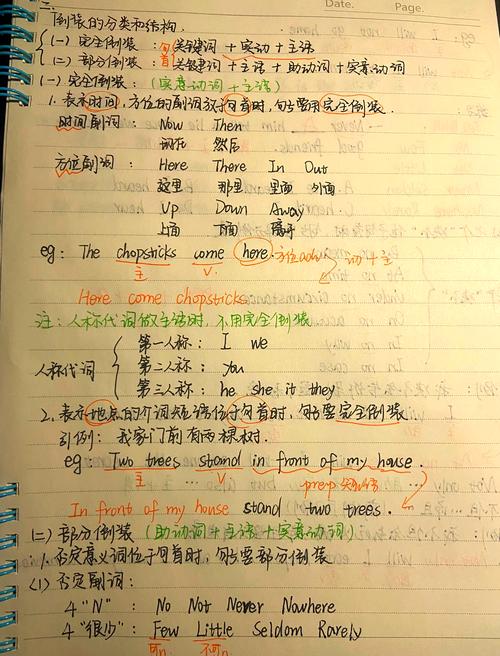 Date. Page.
二.
倒装的分类和结构.
(一) 完全倒装 : 句首关键词 + 实动 + 主语
(二) 部分倒装 : 关键词 + 主语 + 助动词 + 实意动词
(一) 完全倒装 : (实意动词 + 主语)
1. 表示时间, 方位的副词放于句首时, 句子要用完全倒装.
时间副词 : Now Then
现在 然后
方位副词 : Here There In Out
这里 那里 里面 外面
Up Down Away
上面 下面 离开
eg: The chopsticks come here. 方位adv 动+主
主 V.
Here come chopsticks.
注: 人称代词做主语时, 不用完全倒装
第一人称 : I we
人称代词 第二人称 : you
第三人称 : he she it they
2. 表示地点的介词短语位于句首时, 句子要完全倒装
引例: 我家门前有两棵树.
eg: Two trees stand in front of my house.
主 V prep短语
In front of my house stand two trees.
(二) 部分倒装 (助动词 + 主语 + 实意动词)
1. 否定意义词位于句首时, 句子要部分倒装
(1) 否定副词:
4"N" : No Not Never Nowhere
4"很少" : Few Little Seldom Rarely
可n. 不可n.